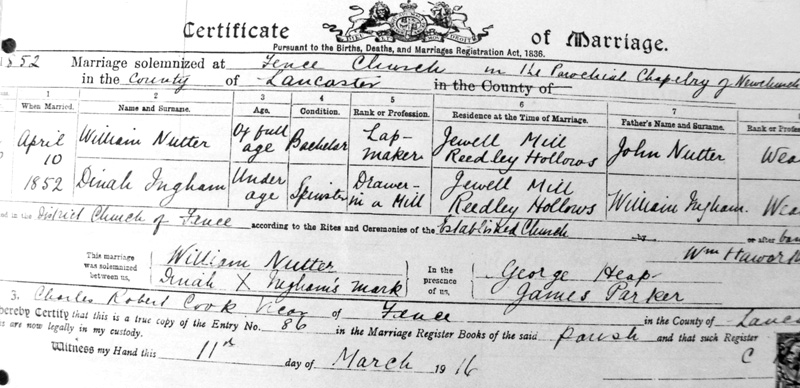 Certificate of Marriage.
Pursuant to the Births, Deaths, and Marriages Registration Act, 1836.
1852 Marriage solemnized at Fence Church in the Parochial Chapelry of Newchurch
in the County of Lancaster in the County of
1 2 3 4 5 6 7
When Married. Name and Surname. Age. Condition. Rank or Profession. Residence at the Time of Marriage. Father's Name and Surname. Rank or Profes
April 10 William Nutter Of full age Bachelor Lap-maker Jewell Mill Reedley Hollows John Nutter Wea
1852 Dinah Ingham Under age Spinster Drawer-in a Mill Jewell Mill Reedley Hollows William Ingham. Wea
ed in the District Church of Fence according to the Rites and Ceremonies of the Established Church by or after ban
Wm Hawor
This marriage was solemnized between us, William Nutter In the presence of us, George Heap
Dinah X Ingham's mark James Parker
3. Charles Robert Cook Vicar of Fence in the County of Lanc
hereby Certify that this is a true copy of the Entry No. 86 in the Marriage Register Books of the said Parish and that such Register
s are now legally in my custody.
Witness my Hand this 11th day of March 1916
C